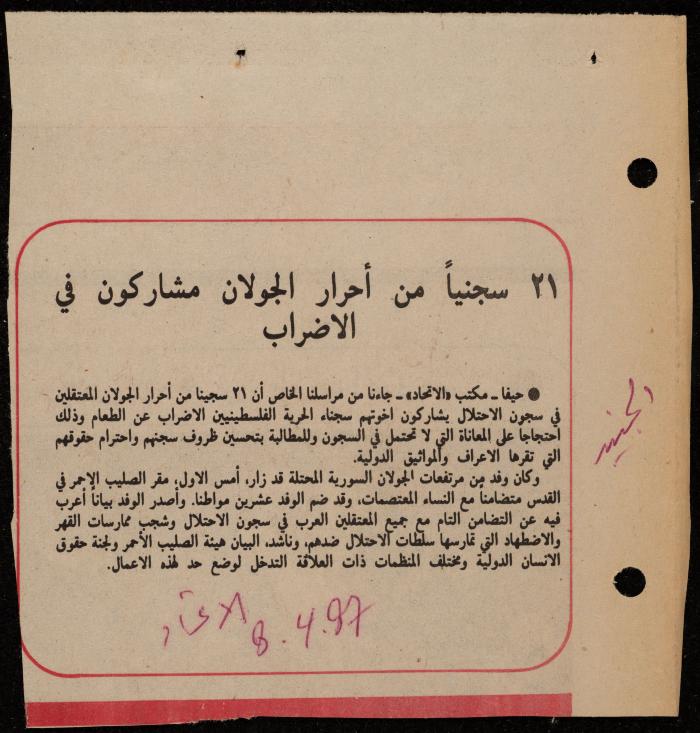 ٢١ سجنياً من أحرار الجولان مشاركون في
الاضراب
● حيفا ـ مكتب «الاتحاد» ـ جاءنا من مراسلنا الخاص أن ٢١ سجينا من أحرار الجولان المعتقلين
في سجون الاحتلال يشاركون اخوتهم سجناء الحرية الفلسطينيين الاضراب عن الطعام وذلك
احتجاجا على المعاناة التي لا تحتمل في السجون وللمطالبة بتحسين ظروف سجنهم واحترام حقوقهم
التي تقرها الاعراف والمواثيق الدولية.
وكان وفد من مرتفعات الجولان السورية المحتلة قد زار، أمس الاول، مقر الصليب الاحمر في
القدس متضامناً مع النساء المعتصمات، وقد ضم الوفد عشرين مواطنا. وأصدر الوفد بياناً أعرب
فيه عن التضامن التام مع جميع المعتقلين العرب في سجون الاحتلال وشجب ممارسات القهر
والاضطهاد التي تمارسها سلطات الاحتلال ضدهم، وناشد، البيان هيئة الصليب الأحمر ولجنة حقوق
الانسان الدولية ومختلف المنظمات ذات العلاقة التدخل لوضع حد لهذه الاعمال.
الاتحاد 8.4.87
الجنيد